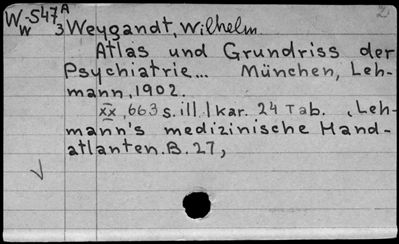 W-547A 2
W 3 Weygandt, Wilhelm
Atlas und Grundriss der
Psychiatrie... München, Leh-
mann, 1902.
xx, 663 s. ill. 1 kar. 24 Tab. (Leh-
mann's medizinische Hand-
atlanten. B. 27,